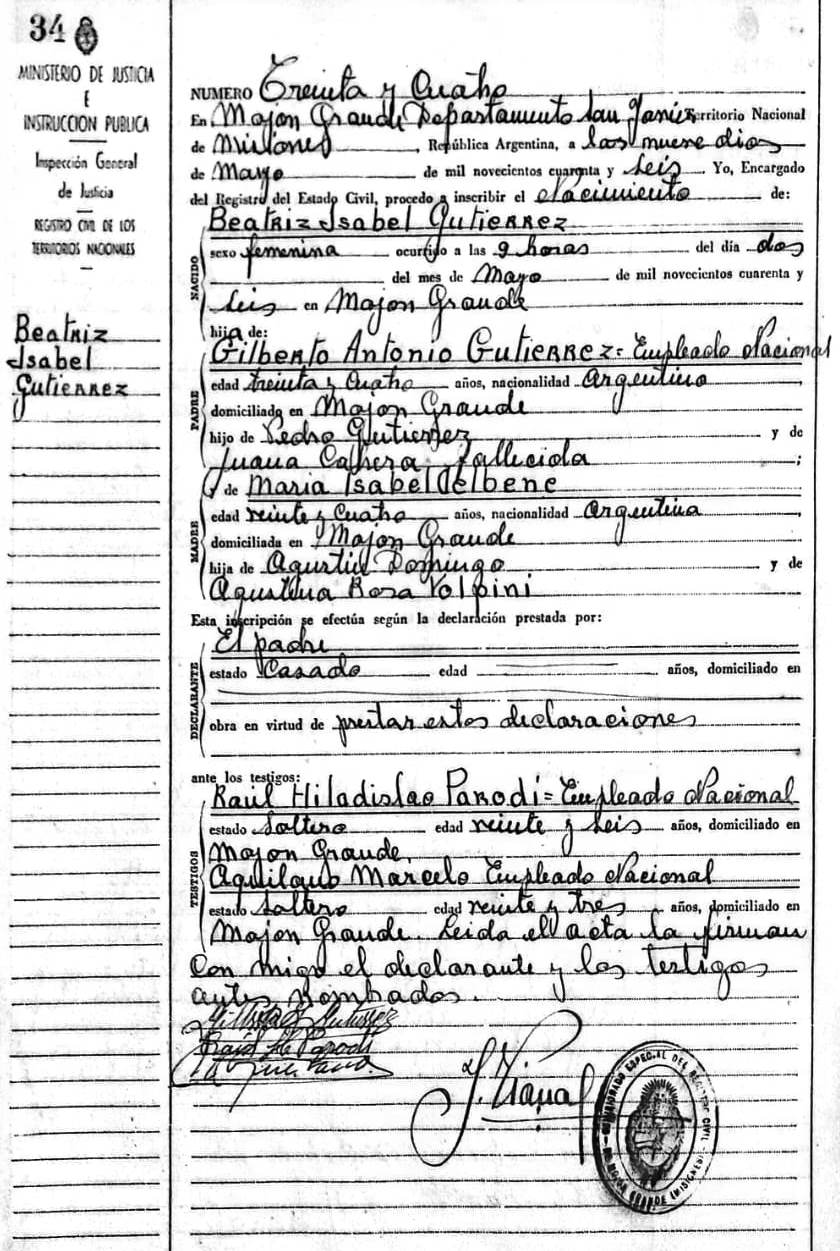 34
MINISTERIO DE JUSTICIA
E
INSTRUCCION PUBLICA
Inspección General
de Justicia
REGISTRO CIVIL DE LOS
TERRITORIOS NACIONALES
Beatriz
Isabel
Gutierrez
NUMERO Treinta y Cuatro
En Mojon Grande Departamento San Javier Territorio Nacional
de Misiones, República Argentina, a los nueve dias
de Mayo de mil novecientos cuarenta y seis Yo, Encargado
del Registro del Estado Civil, procedo a inscribir el Nacimiento de:
Beatriz Isabel Gutierrez
NACIDO
sexo femenina ocurrido a las 9 horas del día dos
del mes de Mayo de mil novecientos cuarenta y
seis en Mojon Grande
hija de:
PADRE
Gilberto Antonio Gutierrez = Empleado Nacional
edad treinta y Cuatro años, nacionalidad Argentino
domiciliado en Mojon Grande
hijo de Pedro Gutierrez y de
Juana Cabrera fallecida ;
MADRE
y de Maria Isabel Delbene
edad veinte y Cuatro años, nacionalidad Argentina
domiciliada en Mojon Grande
hija de Agustin Domingo y de
Agustina Rosa Volpini
Esta inscripción se efectúa según la declaración prestada por:
DECLARANTE
El padre
estado Casado edad años, domiciliado en
obra en virtud de prestar estas declaraciones
ante los testigos:
TESTIGOS
Raúl Hiladislao Parodi = Empleado Nacional
estado Soltero edad veinte y seis años, domiciliado en
Mojon Grande,
Aquilano Marcelo Empleado Nacional
estado Soltero edad veinte y tres años, domiciliado en
Mojon Grande. Leida el acta la firman
Con migo el declarante y los testigos
antes nombados.
Gutierrez
Raúl H Parodi
J. Viana
COMISIONADO ESPECIAL DEL REGISTRO CIVIL
DE MOJON GRANDE (MISIONES)